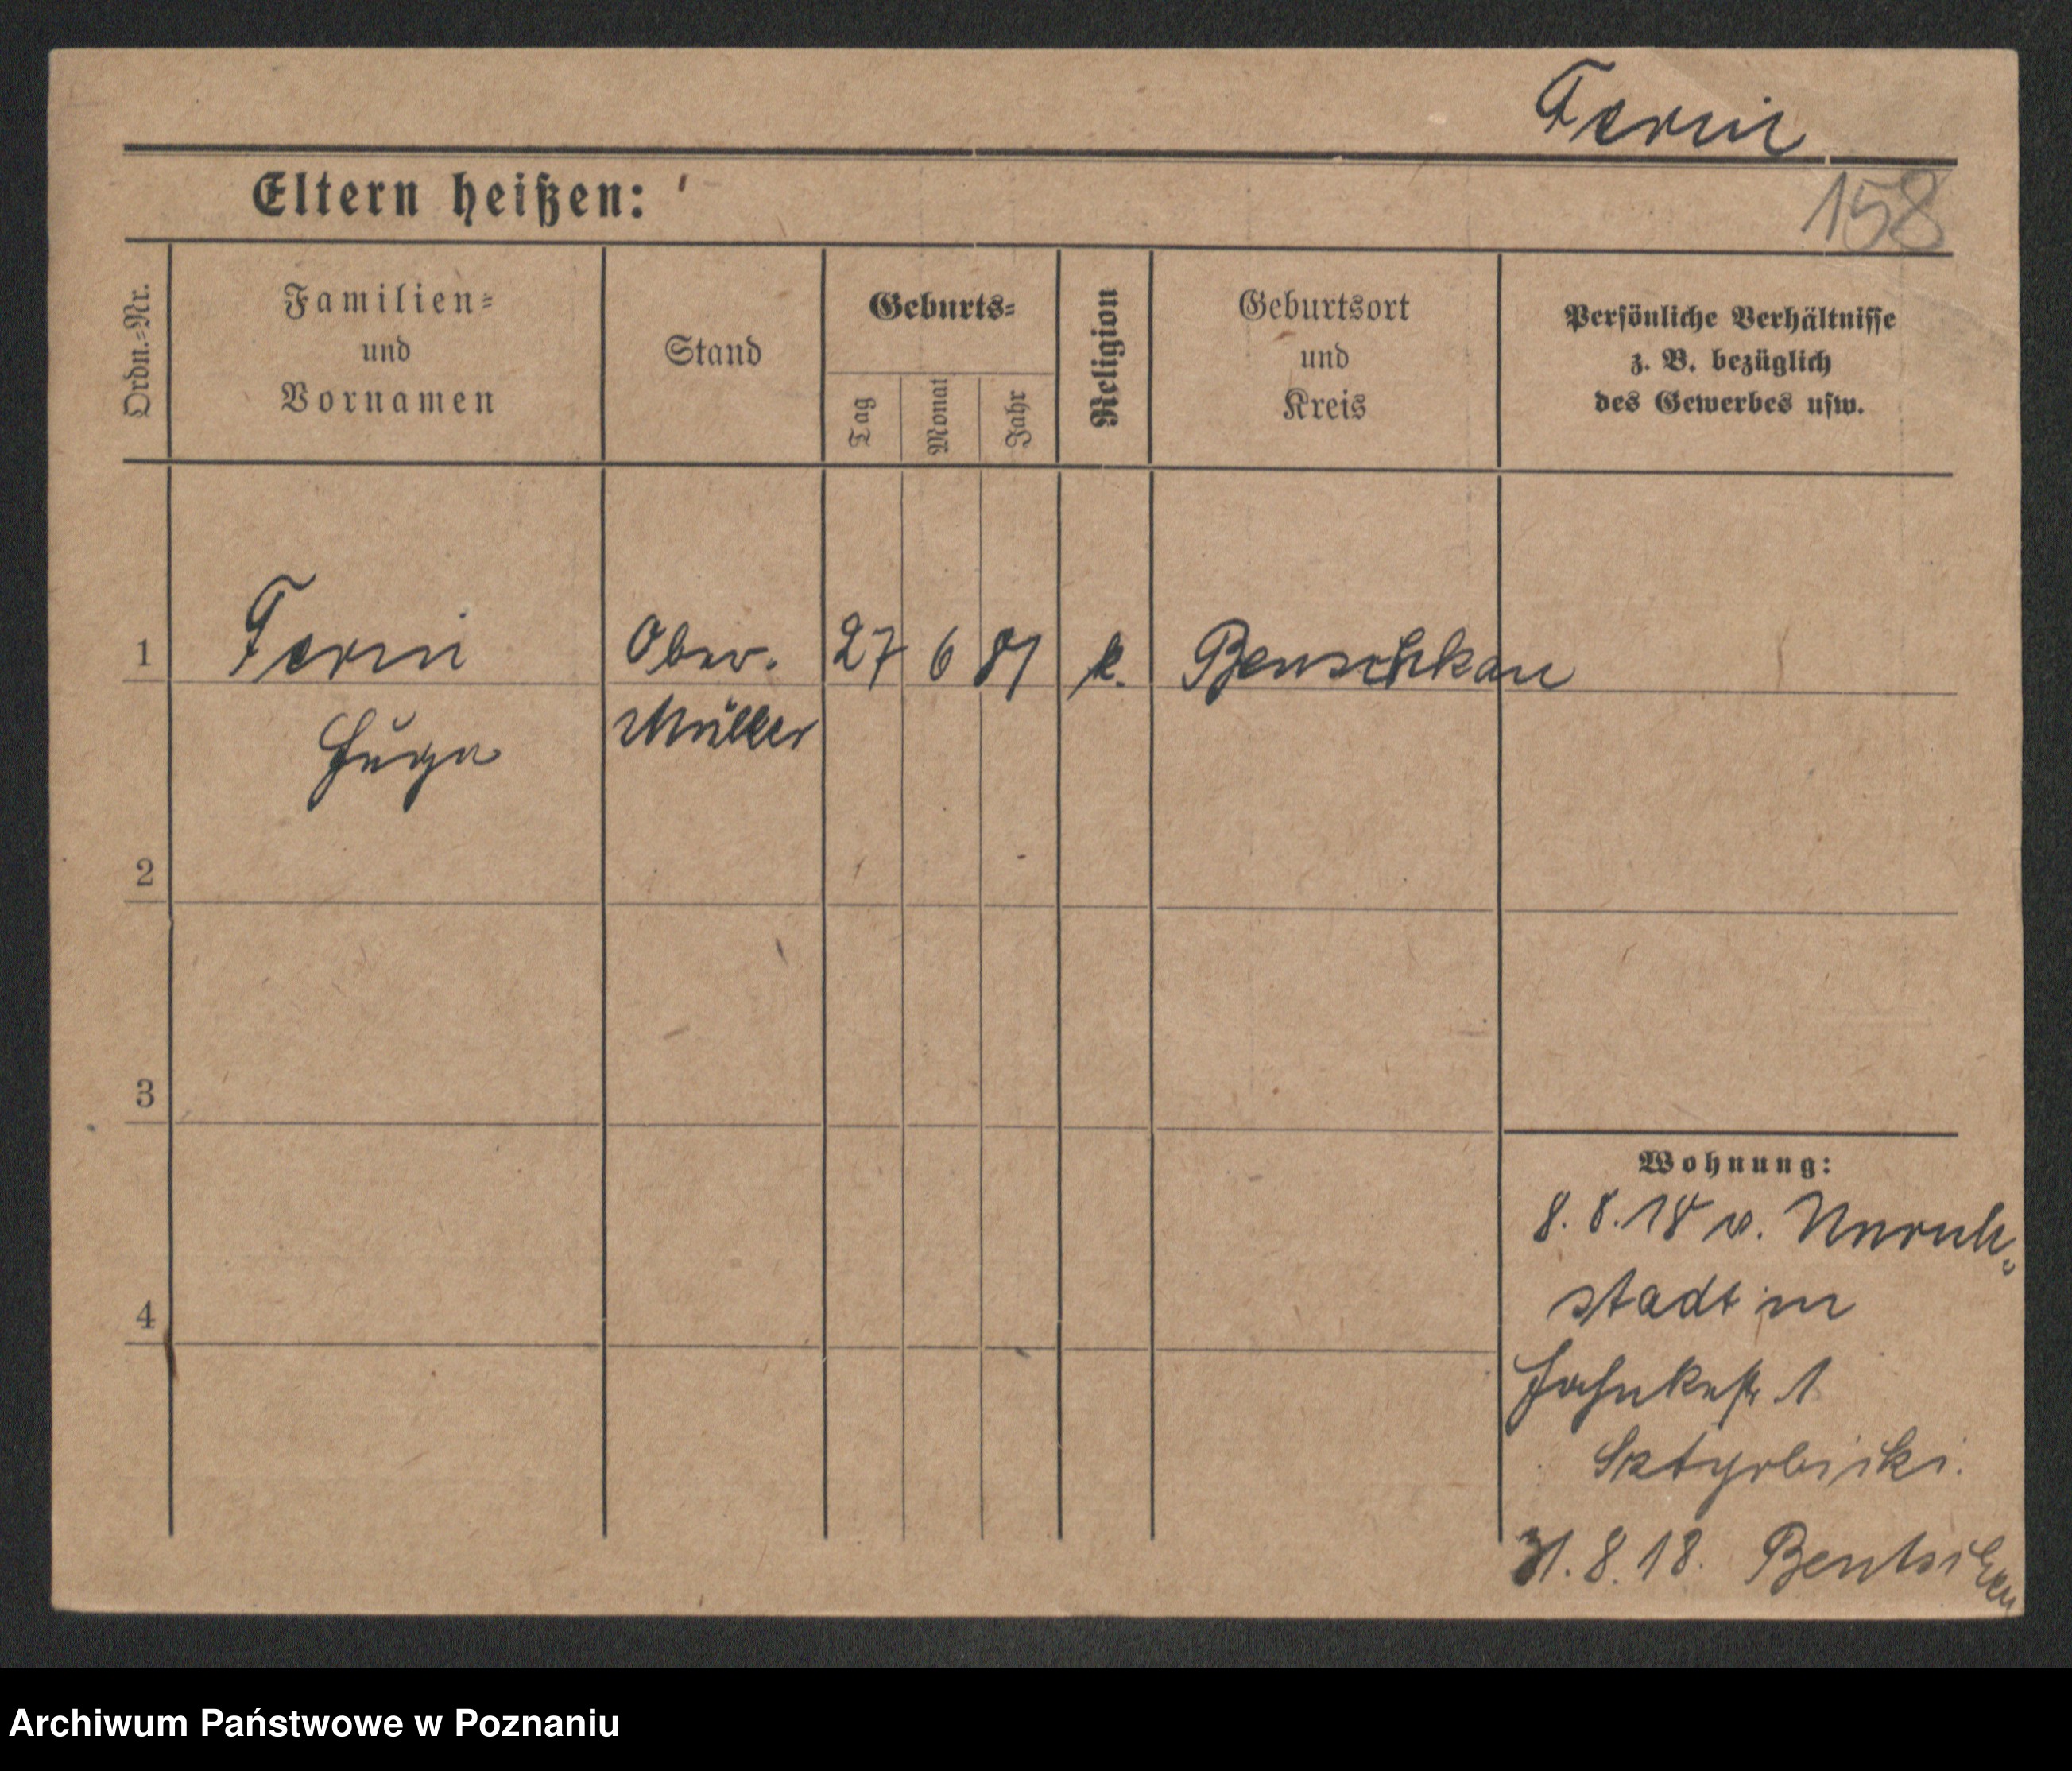 Ferni
Eltern heißen:
158
Ordn.-Nr.
Familien-
und
Vornamen
Stand
Geburts-
Tag
Monat
Jahr
Religion
Geburtsort
und
Kreis
Persönliche Verhältnisse
z. B. bezüglich
des Gewerbes usw.
1
Ferni
Ober.
27 6 81
k.
Benschkau
Hugo
Müller
2
3
4
Wohnung:
8.8.18 v. Unruh-
stadt in
1
31.8.18. Bentschen
Archiwum Państwowe w Poznaniu